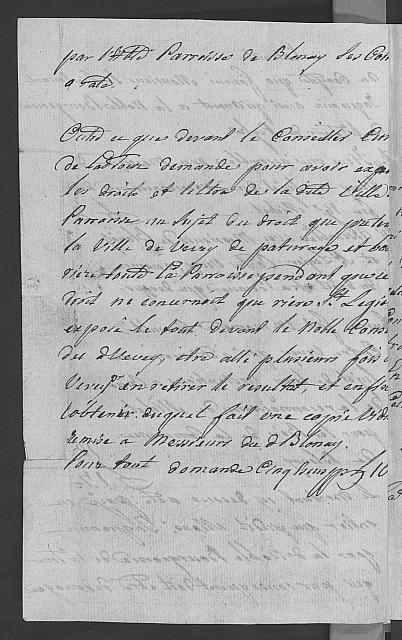 par l'd.te Parroisse de Blonay ses Con
a fait.
Outre ce que devant le Conseiller
de la Tour demande pour avoir expo
les droits et titre de la dite Ville
Parroisse au Sujet du droit que preten
la Ville de Vevey de paturage et
riere toute la Parroisse pendant que ce
droit ne concernoit que riere St. Legie
exposé le tout devant le Noble Conse
du dt Vevey, etre allé plusieurs fois
Vevey en retirer le resultat, et enfin
l'obtenir duquel fait une copie
remise à Messieurs du dt Blonay.
Pour tout demande Cinq